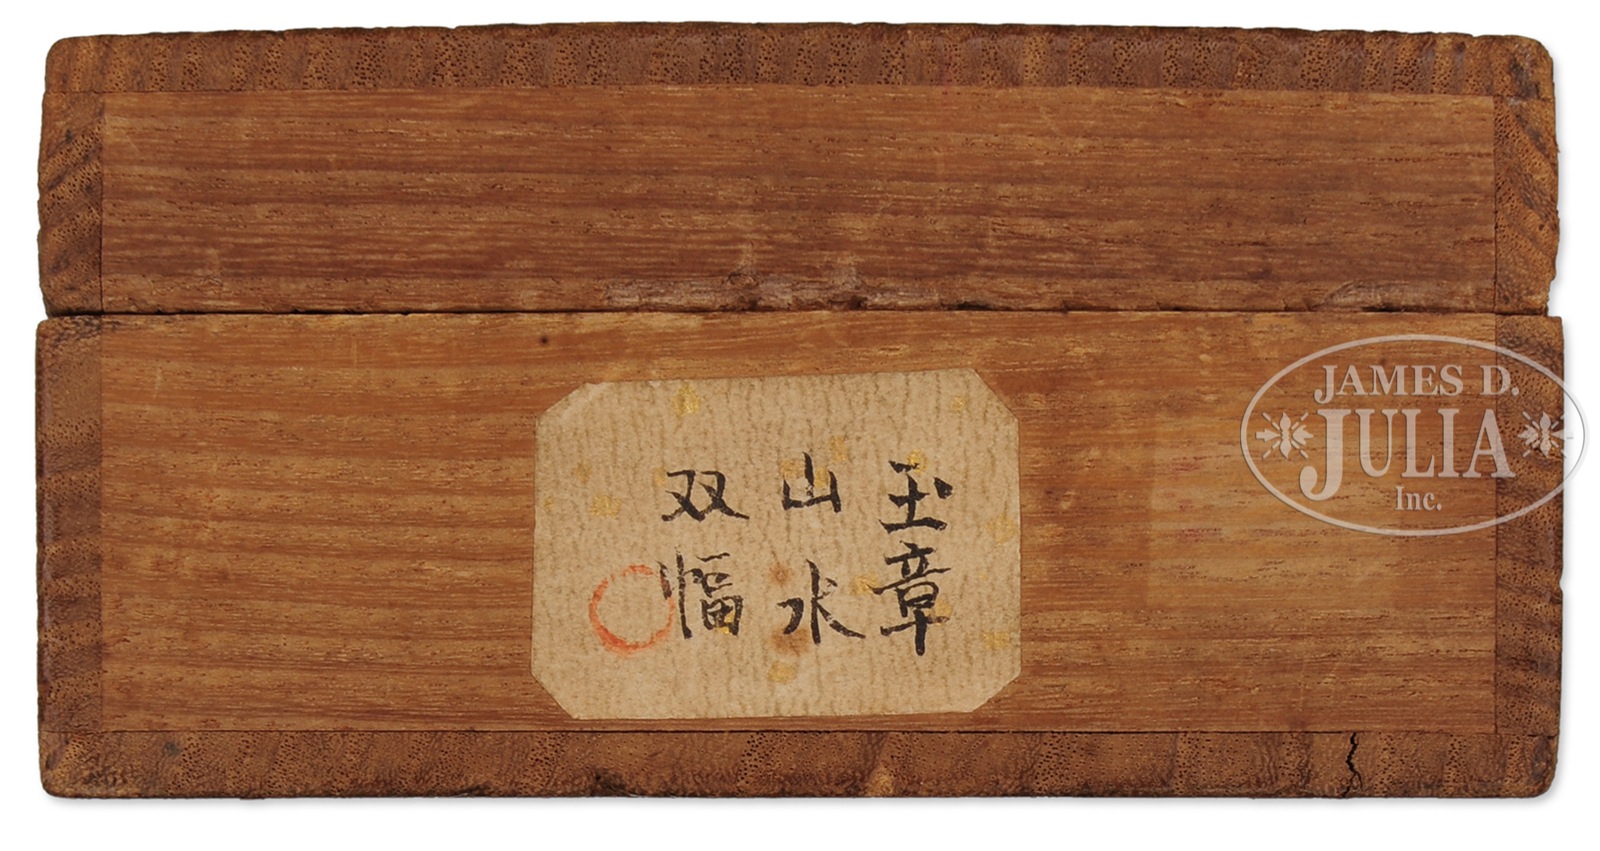 玉章
山水
双幅
JAMES D.
JULIA
Inc.